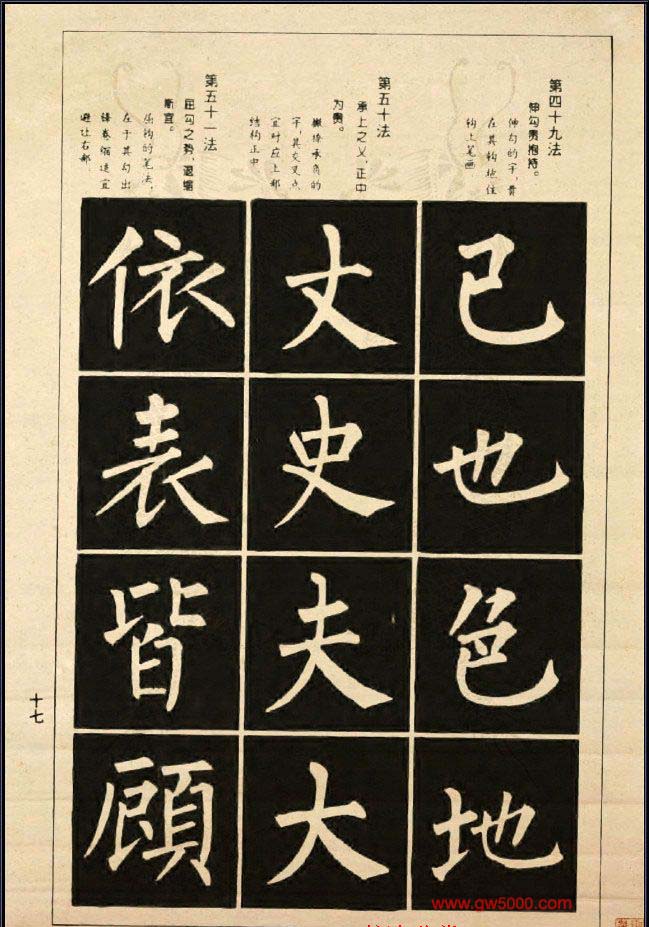 第四十九法
伸勾贵抱持。
伸勾的字，贵
在其钩抱住
钩上笔画
已
也
色
地
第五十法
承上之义，正中
为贵。
撇捺承负的
字，其交叉点
宜对应上部
结构正中
丈
史
夫
大
第五十一法
屈勾之势，退缩
斯宜。
屈钩的笔法，
在于其勾出
锋卷缩适宜
避让右部
依
表
皆
顧
十七
www.gw5000.com